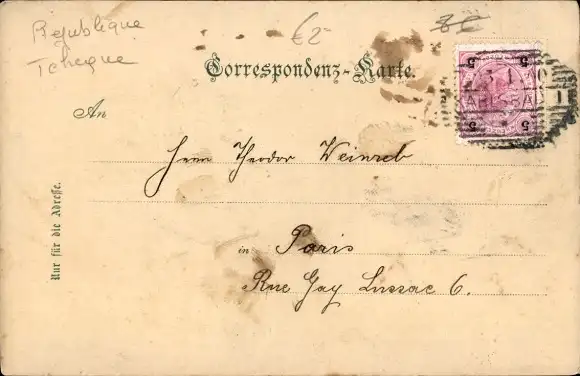 République
Tcheque
€2-
Correspondenz-Karte.
5 5
An
Herrn Theodor Weinreb
in Paris
Rue Gay Lussac 6.
Nur für die Adresse.